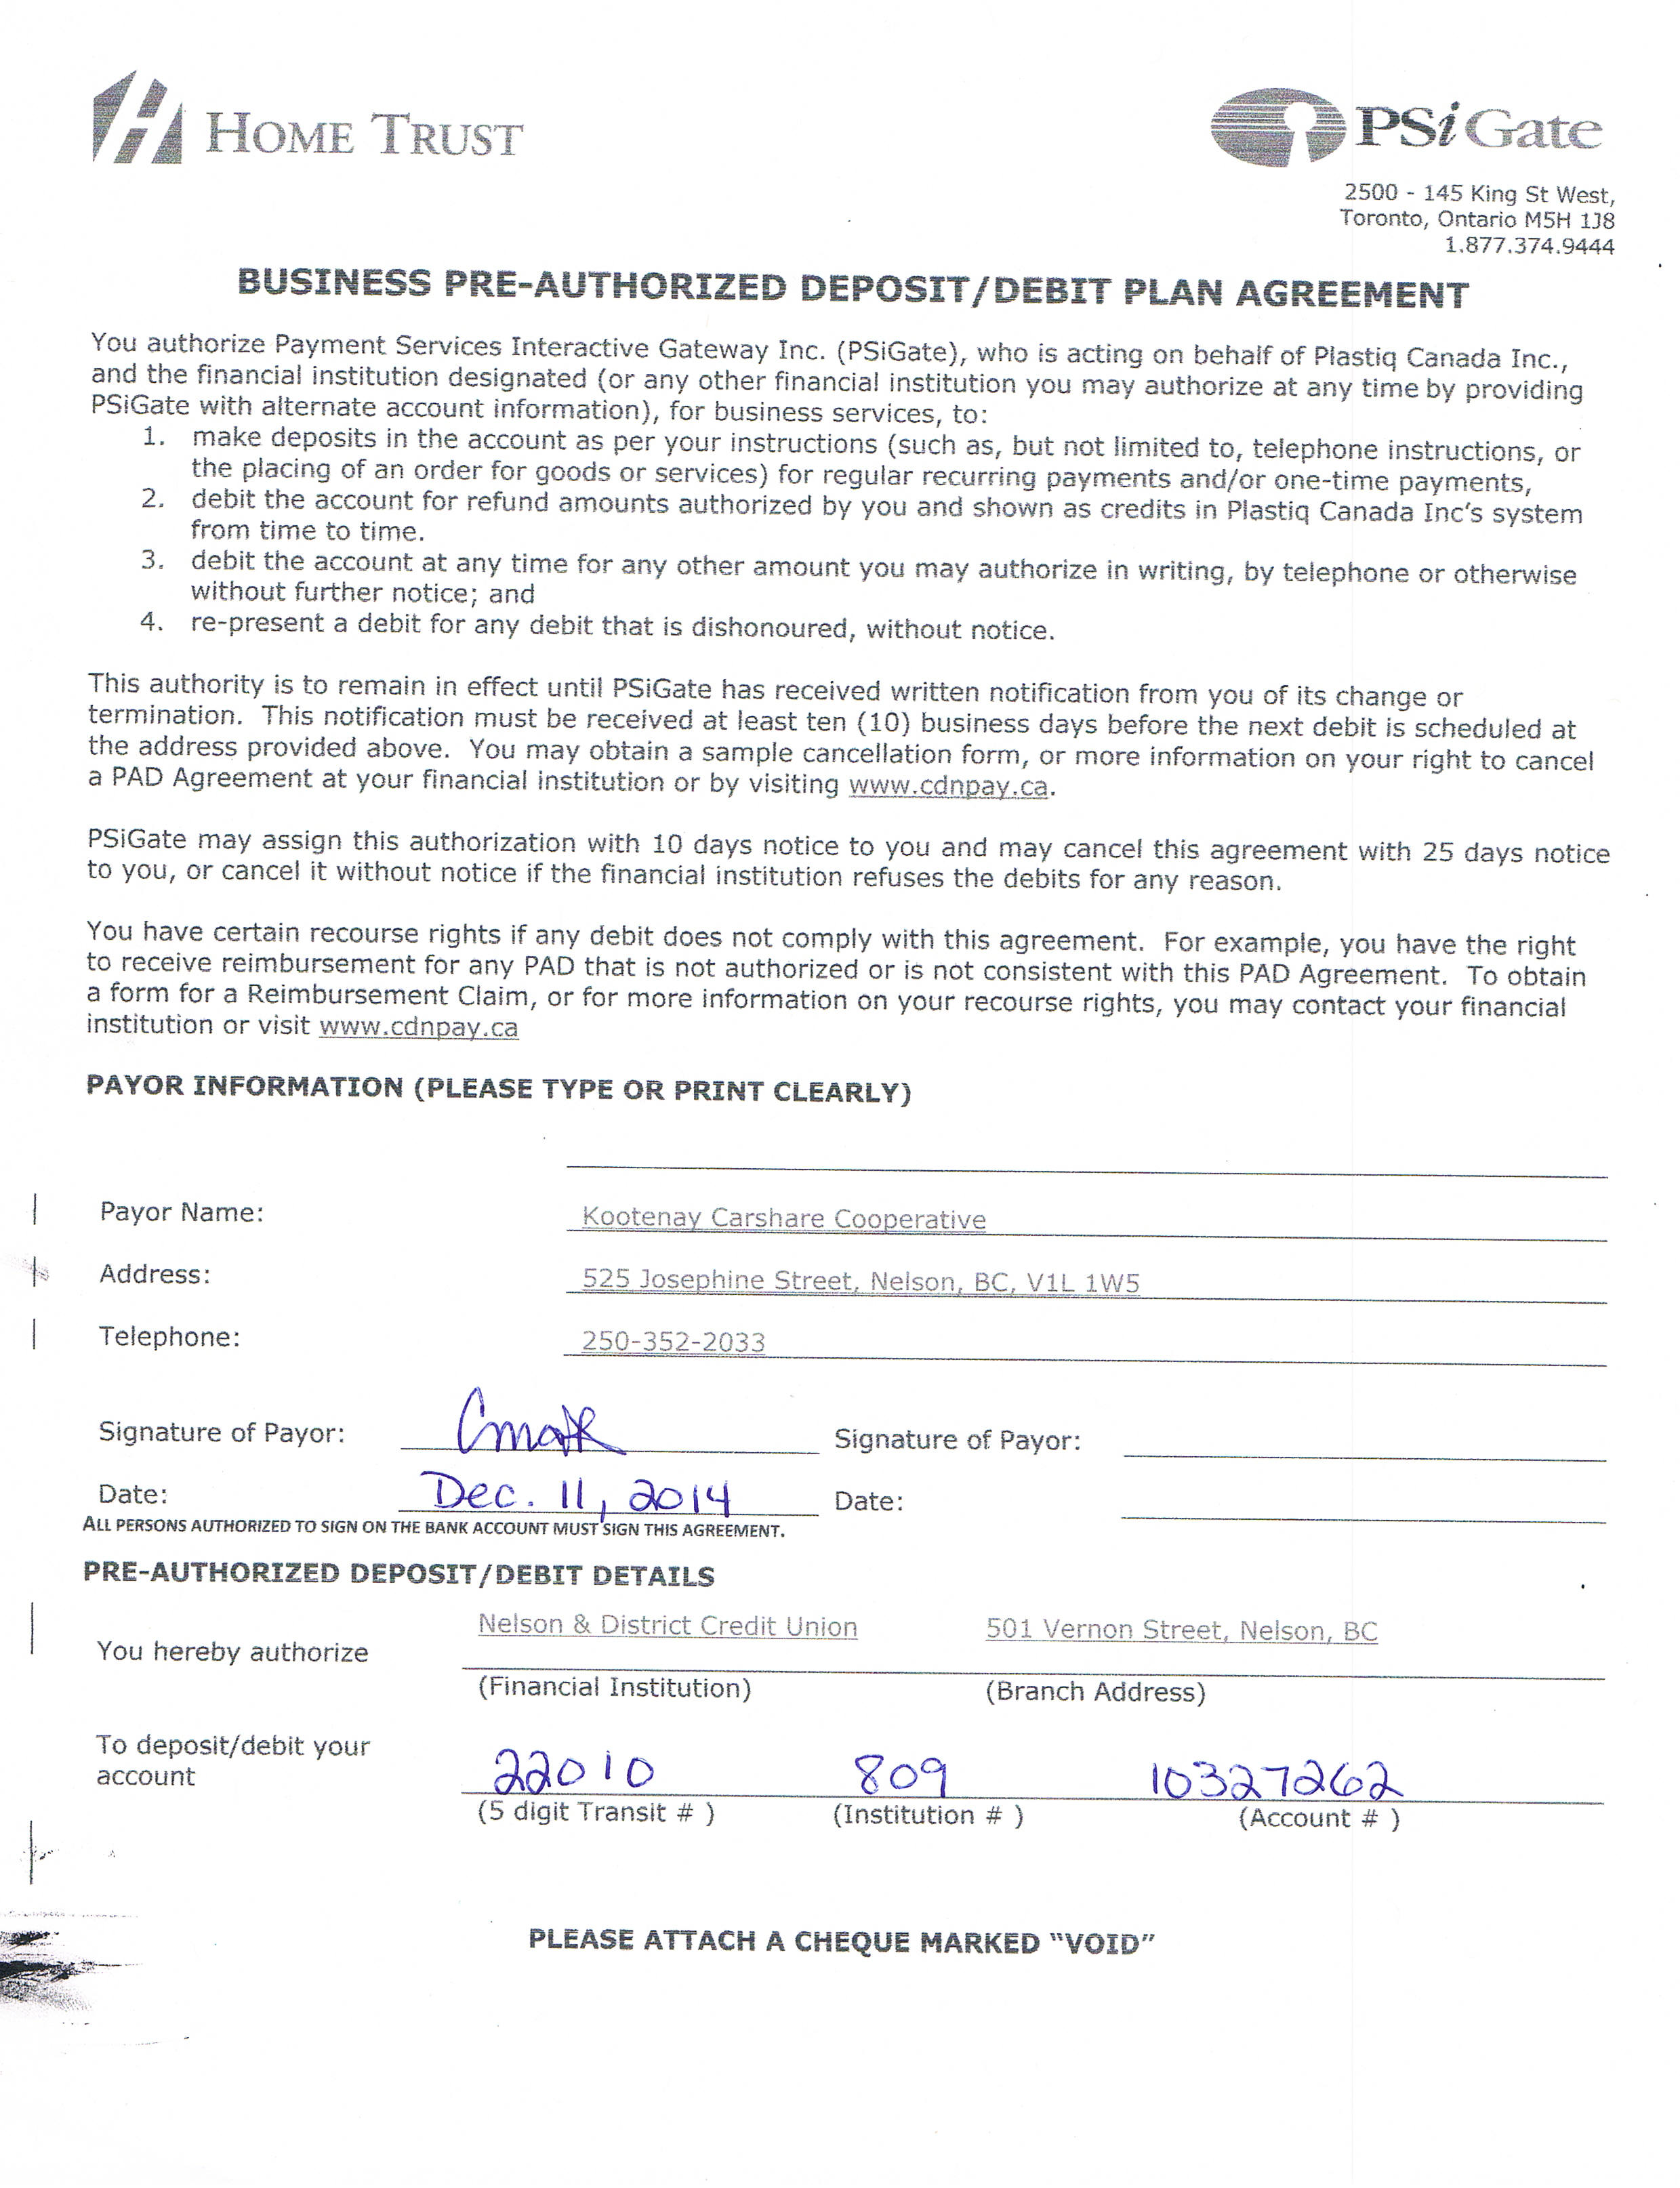 HOME TRUST
PSiGate
2500 - 145 King St West,
Toronto, Ontario M5H 1J8
1.877.374.9444
BUSINESS PRE-AUTHORIZED DEPOSIT/DEBIT PLAN AGREEMENT
You authorize Payment Services Interactive Gateway Inc. (PSiGate), who is acting on behalf of Plastiq Canada Inc.,
and the financial institution designated (or any other financial institution you may authorize at any time by providing
PSiGate with alternate account information), for business services, to:
1. make deposits in the account as per your instructions (such as, but not limited to, telephone instructions, or
the placing of an order for goods or services) for regular recurring payments and/or one-time payments,
2. debit the account for refund amounts authorized by you and shown as credits in Plastiq Canada Inc's system
from time to time.
3. debit the account at any time for any other amount you may authorize in writing, by telephone or otherwise
without further notice; and
4. re-present a debit for any debit that is dishonoured, without notice.
This authority is to remain in effect until PSiGate has received written notification from you of its change or
termination. This notification must be received at least ten (10) business days before the next debit is scheduled at
the address provided above. You may obtain a sample cancellation form, or more information on your right to cancel
a PAD Agreement at your financial institution or by visiting www.cdnpay.ca.
PSiGate may assign this authorization with 10 days notice to you and may cancel this agreement with 25 days notice
to you, or cancel it without notice if the financial institution refuses the debits for any reason.
You have certain recourse rights if any debit does not comply with this agreement. For example, you have the right
to receive reimbursement for any PAD that is not authorized or is not consistent with this PAD Agreement. To obtain
a form for a Reimbursement Claim, or for more information on your recourse rights, you may contact your financial
institution or visit www.cdnpay.ca
PAYOR INFORMATION (PLEASE TYPE OR PRINT CLEARLY)
Payor Name: Kootenay Carshare Cooperative
Address: 525 Josephine Street, Nelson, BC, V1L 1W5
Telephone: 250-352-2033
Signature of Payor: Signature of Payor:
Date: Dec. 11, 2014 Date:
ALL PERSONS AUTHORIZED TO SIGN ON THE BANK ACCOUNT MUST SIGN THIS AGREEMENT.
PRE-AUTHORIZED DEPOSIT/DEBIT DETAILS
Nelson & District Credit Union 501 Vernon Street, Nelson, BC
You hereby authorize
(Financial Institution) (Branch Address)
To deposit/debit your
account 22010 809 10327262
(5 digit Transit # ) (Institution # ) (Account # )
PLEASE ATTACH A CHEQUE MARKED “VOID”